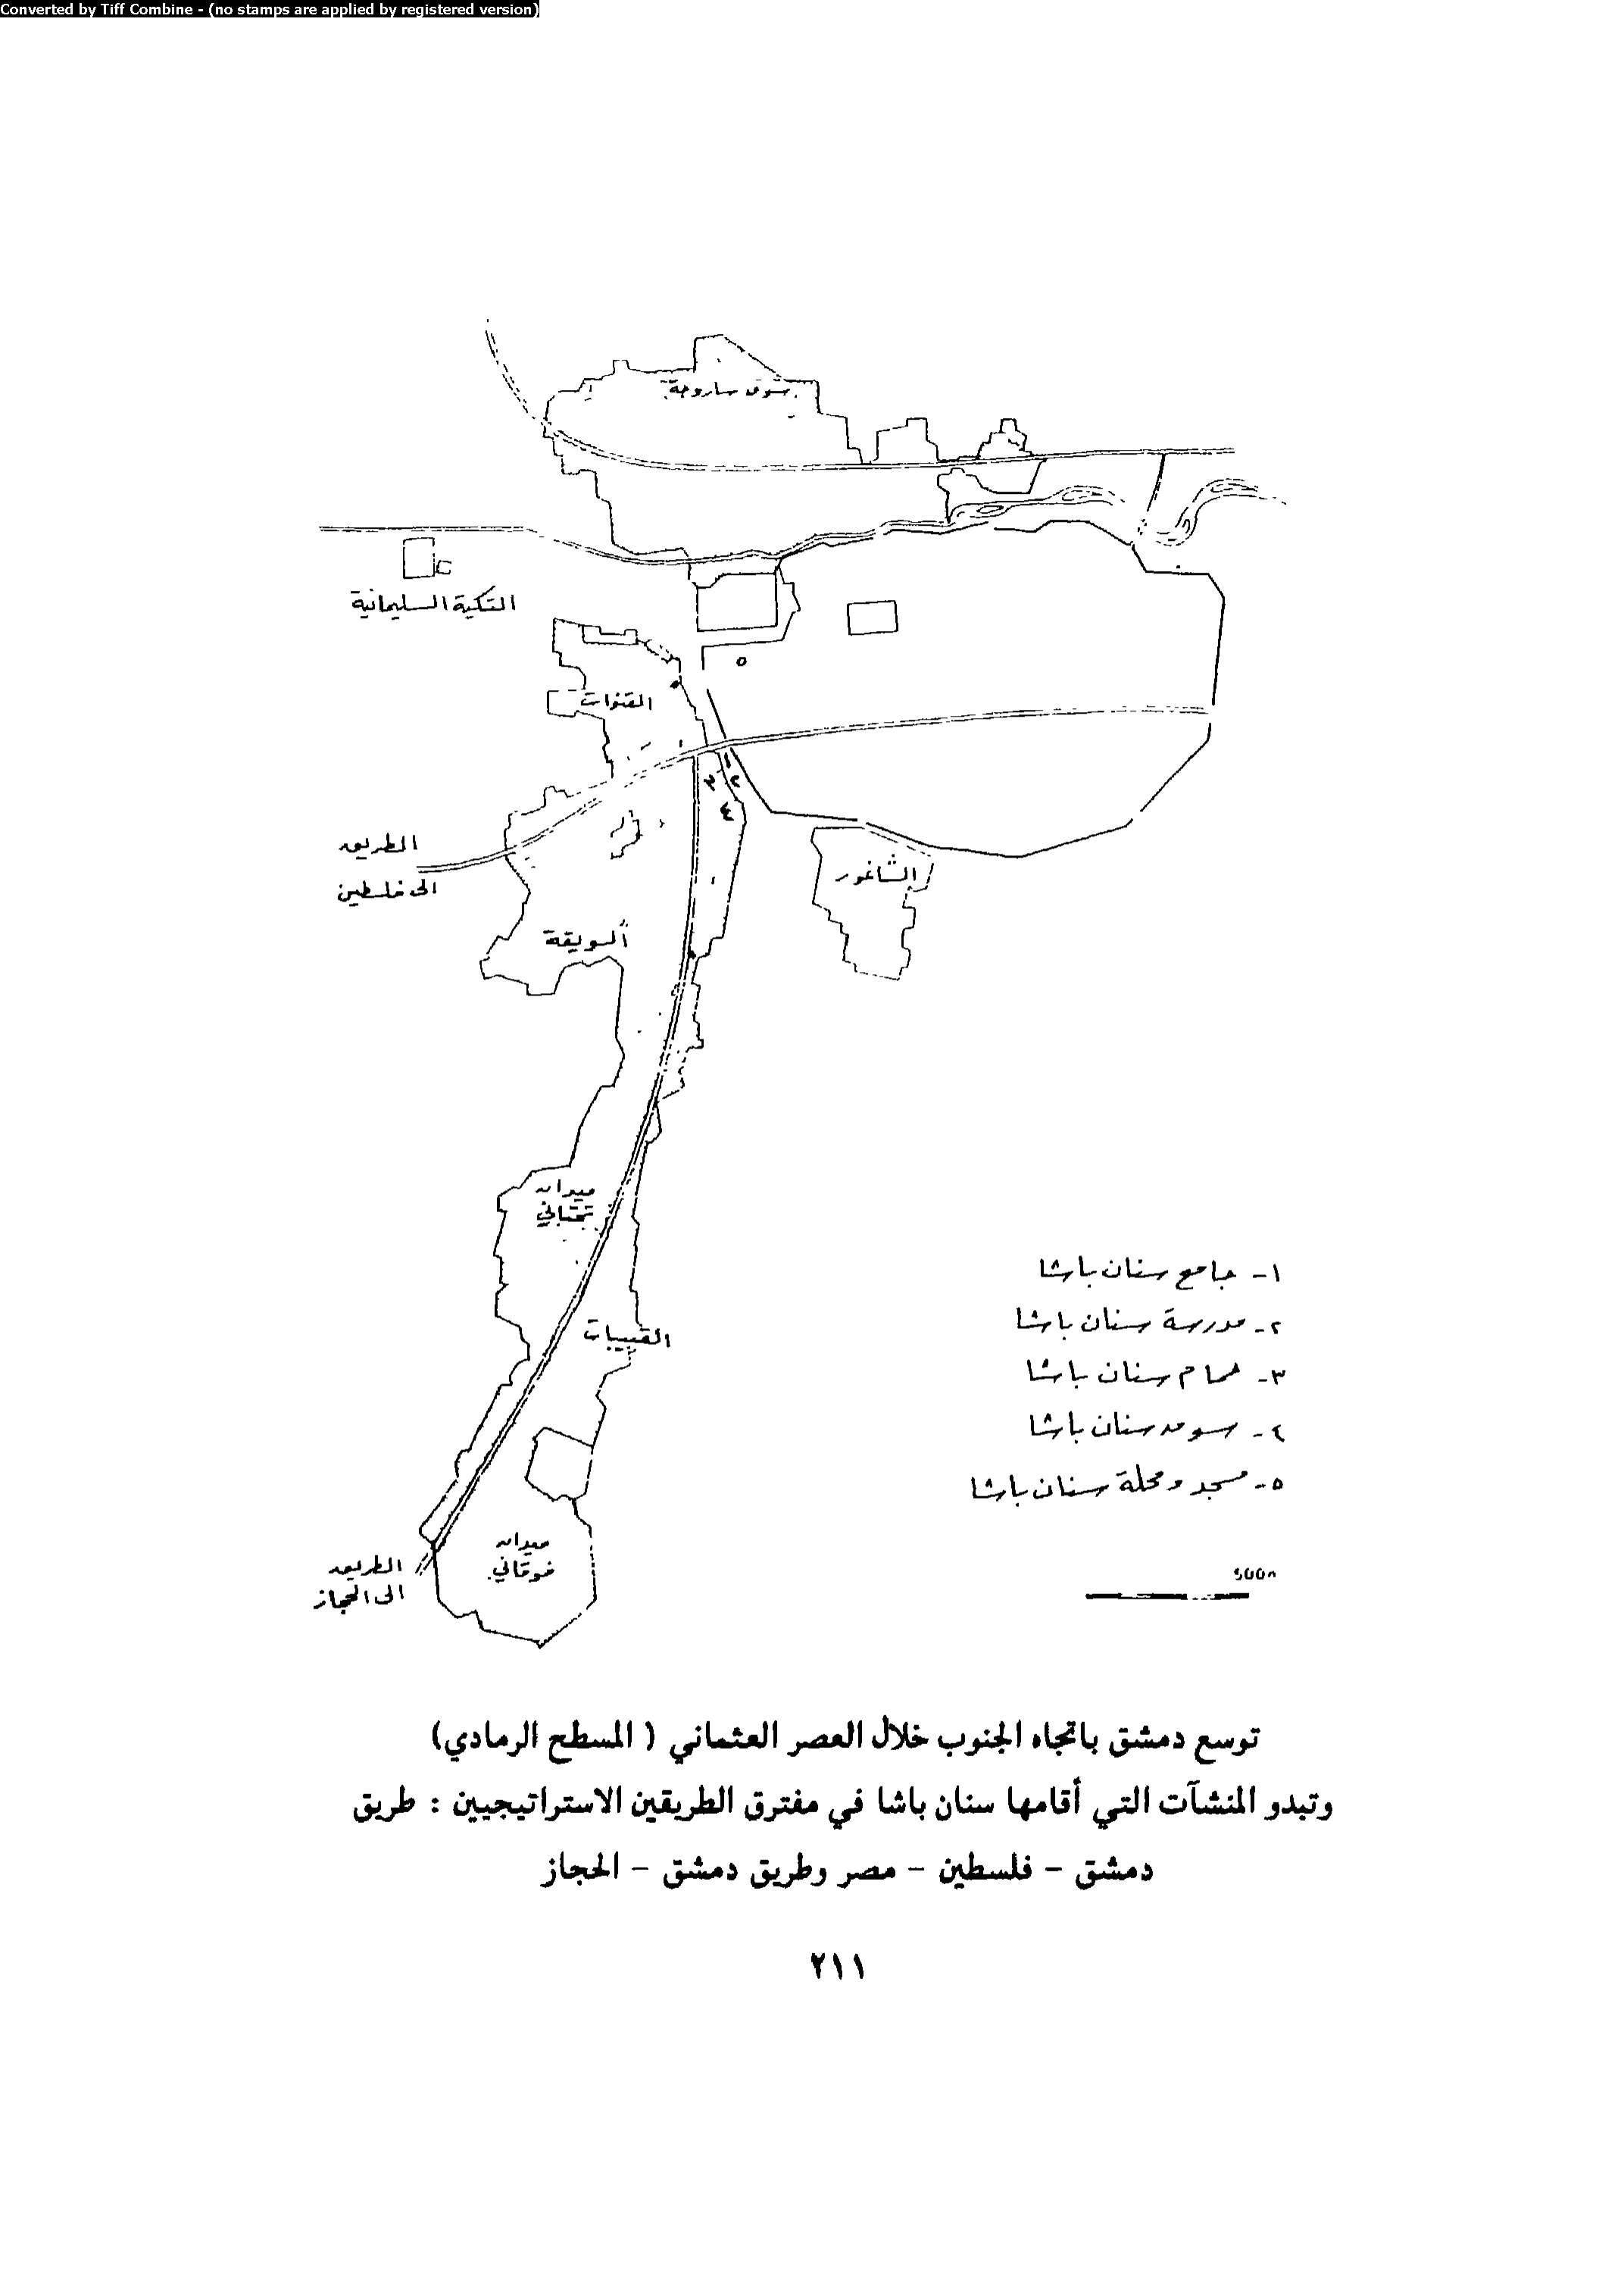 Converted by Tiff Combine - (no stamps are applied by registered version)
سوق ساروجة
التكية السليمانية
٥
القنوات
١
٣ ٢
٤
الطريق
الى فلسطين
الشاغور
السويقة
ميدان
تحتاني
القبيبات
ميدان
فوقاني
الطريق
الى الحجاز
١- جامع سنان باشا
٢- مدرسة سنان باشا
٣- حمام سنان باشا
٤- سوق سنان باشا
٥- مسجد ومحلة سنان باشا
500m
توسع دمشق باتجاه الجنوب خلال العصر العثماني ( المسطح الرمادي)
وتبدو المنشآت التي أقامها سنان باشا في مفترق الطريقين الاستراتيجيين : طريق
دمشق - فلسطين - مصر وطريق دمشق - الحجاز
٢١١